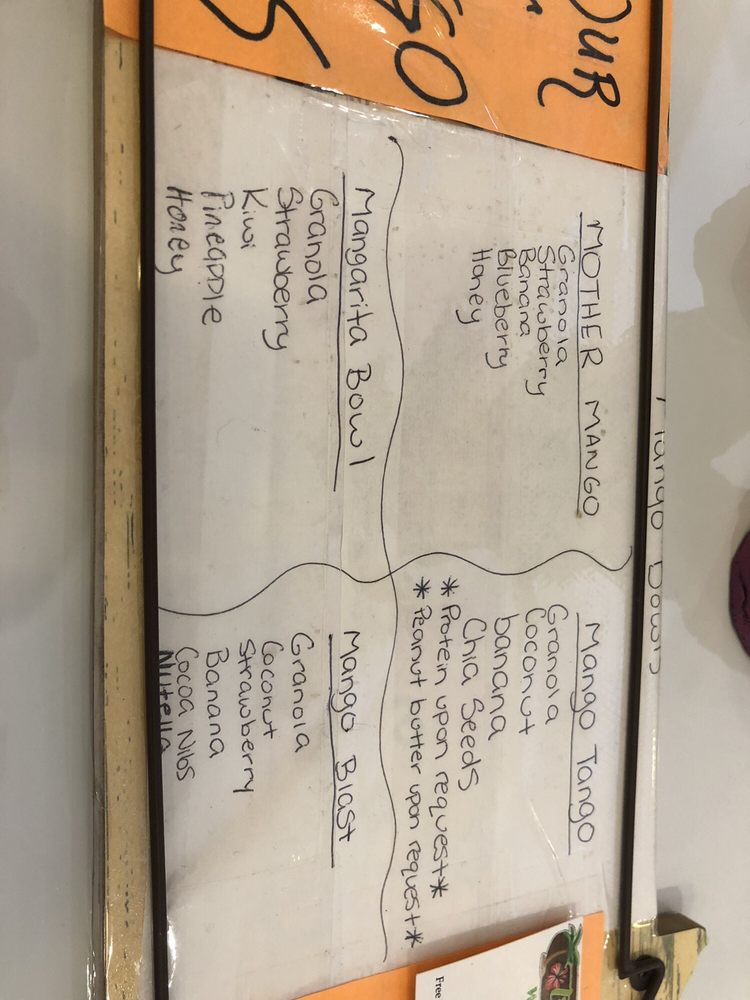 OUR
GO
Mango Bowls
MOTHER MANGO
Granola
Strawberry
Banana
Blueberry
Honey
Mango Tango
Granola
Coconut
banana
Chia Seeds
*Protein upon request*
*Peanut butter upon request*
Mangarita Bowl
Granola
Strawberry
Kiwi
Pineapple
Honey
Mango Blast
Granola
Coconut
Strawberry
Banana
Cocoa Nibs
Nutella
Free